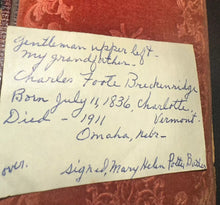 Gentleman upper left -
my grandfather -
Charles Foote Breckenridge
Born July 11, 1836, Charlotte,
Vermont.
Died - 1911
Omaha, Nebr -
over.
signed, Mary Helen Potter